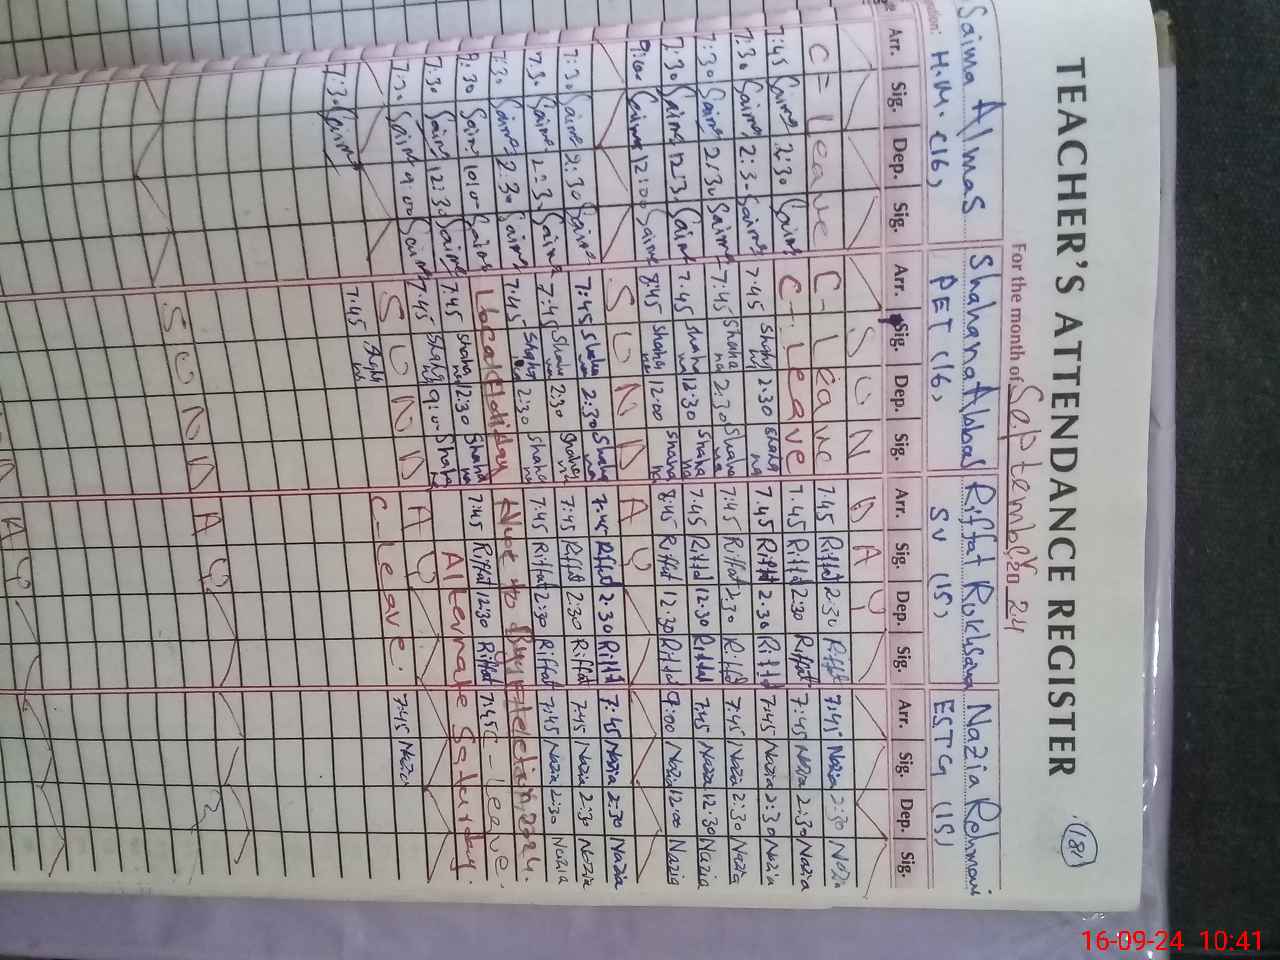 TEACHER'S ATTENDANCE REGISTER
181
For the month of September 2024
Saima Almas Shahana Abbas Riffat Rukhsana Nazia Rehmani
H.M. (16) PET (16) SV (15) ESTG (15)
Arr. Sig. Dep. Sig. Arr. Sig. Dep. Sig. Arr. Sig. Dep. Sig. Arr. Sig. Dep. Sig.
S U N D A Y
C= Leave C- Leave 7.45 Riffat 2:30 Riffat 7:45 Nazia 2:30 Nazia
7:45 Saima 2:30 Saima C- Leave 7.45 Riffat 2:30 Riffat 7:45 Nazia 2:30 Nazia
7:30 Saima 2:30 Saima 7.45 Shahana 2:30 Shahana 7.45 Riffat 2:30 Riffat 7:45 Nazia 2:30 Nazia
7:30 Saima 2:30 Saima 7:45 Shahana 2:30 Shahana 7:45 Riffat 2:30 Riffat 7:45 Nazia 2:30 Nazia
7:30 Saima 12:30 Saima 7.45 Shahana 12:30 Shahana 7.45 Riffat 12:30 Riffat 7:45 Nazia 12:30 Nazia
9:00 Saima 12:00 Saima 8:45 Shahana 12:00 Shahana 8:45 Riffat 12:30 Riffat 9:00 Nazia 12:00 Nazia
S U N D A Y
7:30 Saima 2:30 Saima 7:45 Shahana 2:30 Shahana 7:45 Riffat 2:30 Riffat 7:45 Nazia 2:30 Nazia
7:30 Saima 2:30 Saima 7:45 Shahana 2:30 Shahana 7:45 Riffat 2:30 Riffat 7:45 Nazia 2:30 Nazia
7:30 Saima 2:30 Saima 7:45 Shahana 2:30 Shahana 7:45 Riffat 2:30 Riffat 7:45 Nazia 2:30 Nazia
9:30 Saima Saima Local Holiday election, 2024.
7:30 Saima 12:30 Saima 7:45 Shahana 12:30 Shahana 7:45 Riffat 12:30 Riffat 7:45 C- Leave.
7:30 Saima 9:00 Saima 7:45 Shahana 9:00 Shahana Alternate Saturday.
S U N D A Y
7:30 Saima 7:45 Shahana C- Leave. 7:45 Nazia
S U N D A Y
A Y
16-09-24 10:41